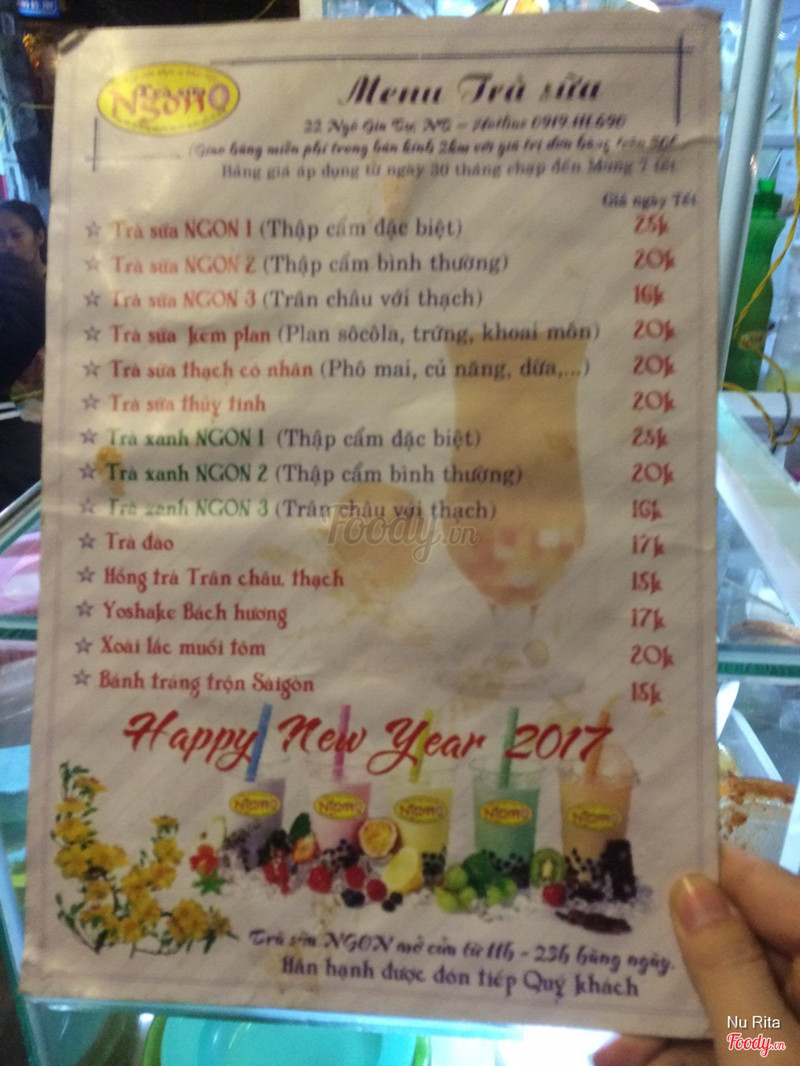 NGON
Menu Trà sữa
22 Ngô Gia Tự, NT - Hotline 0919.111.690
(Giao hàng miễn phí trong bán kính 2km với giá trị đơn hàng trên 50k
Bảng giá áp dụng từ ngày 30 tháng chạp đến Mùng 7 tết
Giá ngày Tết
☆ Trà sữa NGON 1 (Thập cẩm đặc biệt) 25k
☆ Trà sữa NGON 2 (Thập cẩm bình thường) 20k
☆ Trà sữa NGON 3 (Trân châu với thạch) 16k
☆ Trà sữa kem plan (Plan sôcôla, trứng, khoai môn) 20k
☆ Trà sữa thạch có nhân (Phô mai, củ năng, dừa,...) 20k
☆ Trà sữa thủy tinh 20k
☆ Trà xanh NGON 1 (Thập cẩm đặc biệt) 25k
☆ Trà xanh NGON 2 (Thập cẩm bình thường) 20k
☆ Trà xanh NGON 3 (Trân châu với thạch) 16k
☆ Trà đào 17k
☆ Hồng trà Trân châu, thạch 15k
☆ Yoshake Bách hương 17k
☆ Xoài lắc muối tôm 20k
☆ Bánh tráng trộn Sàigòn 15k
Foody.vn
Happy New Year 2017
Trà sữa NGON mở cửa từ 11h - 23h hàng ngày.
Hân hạnh được đón tiếp Quý khách
Nu Rita
Foody.vn